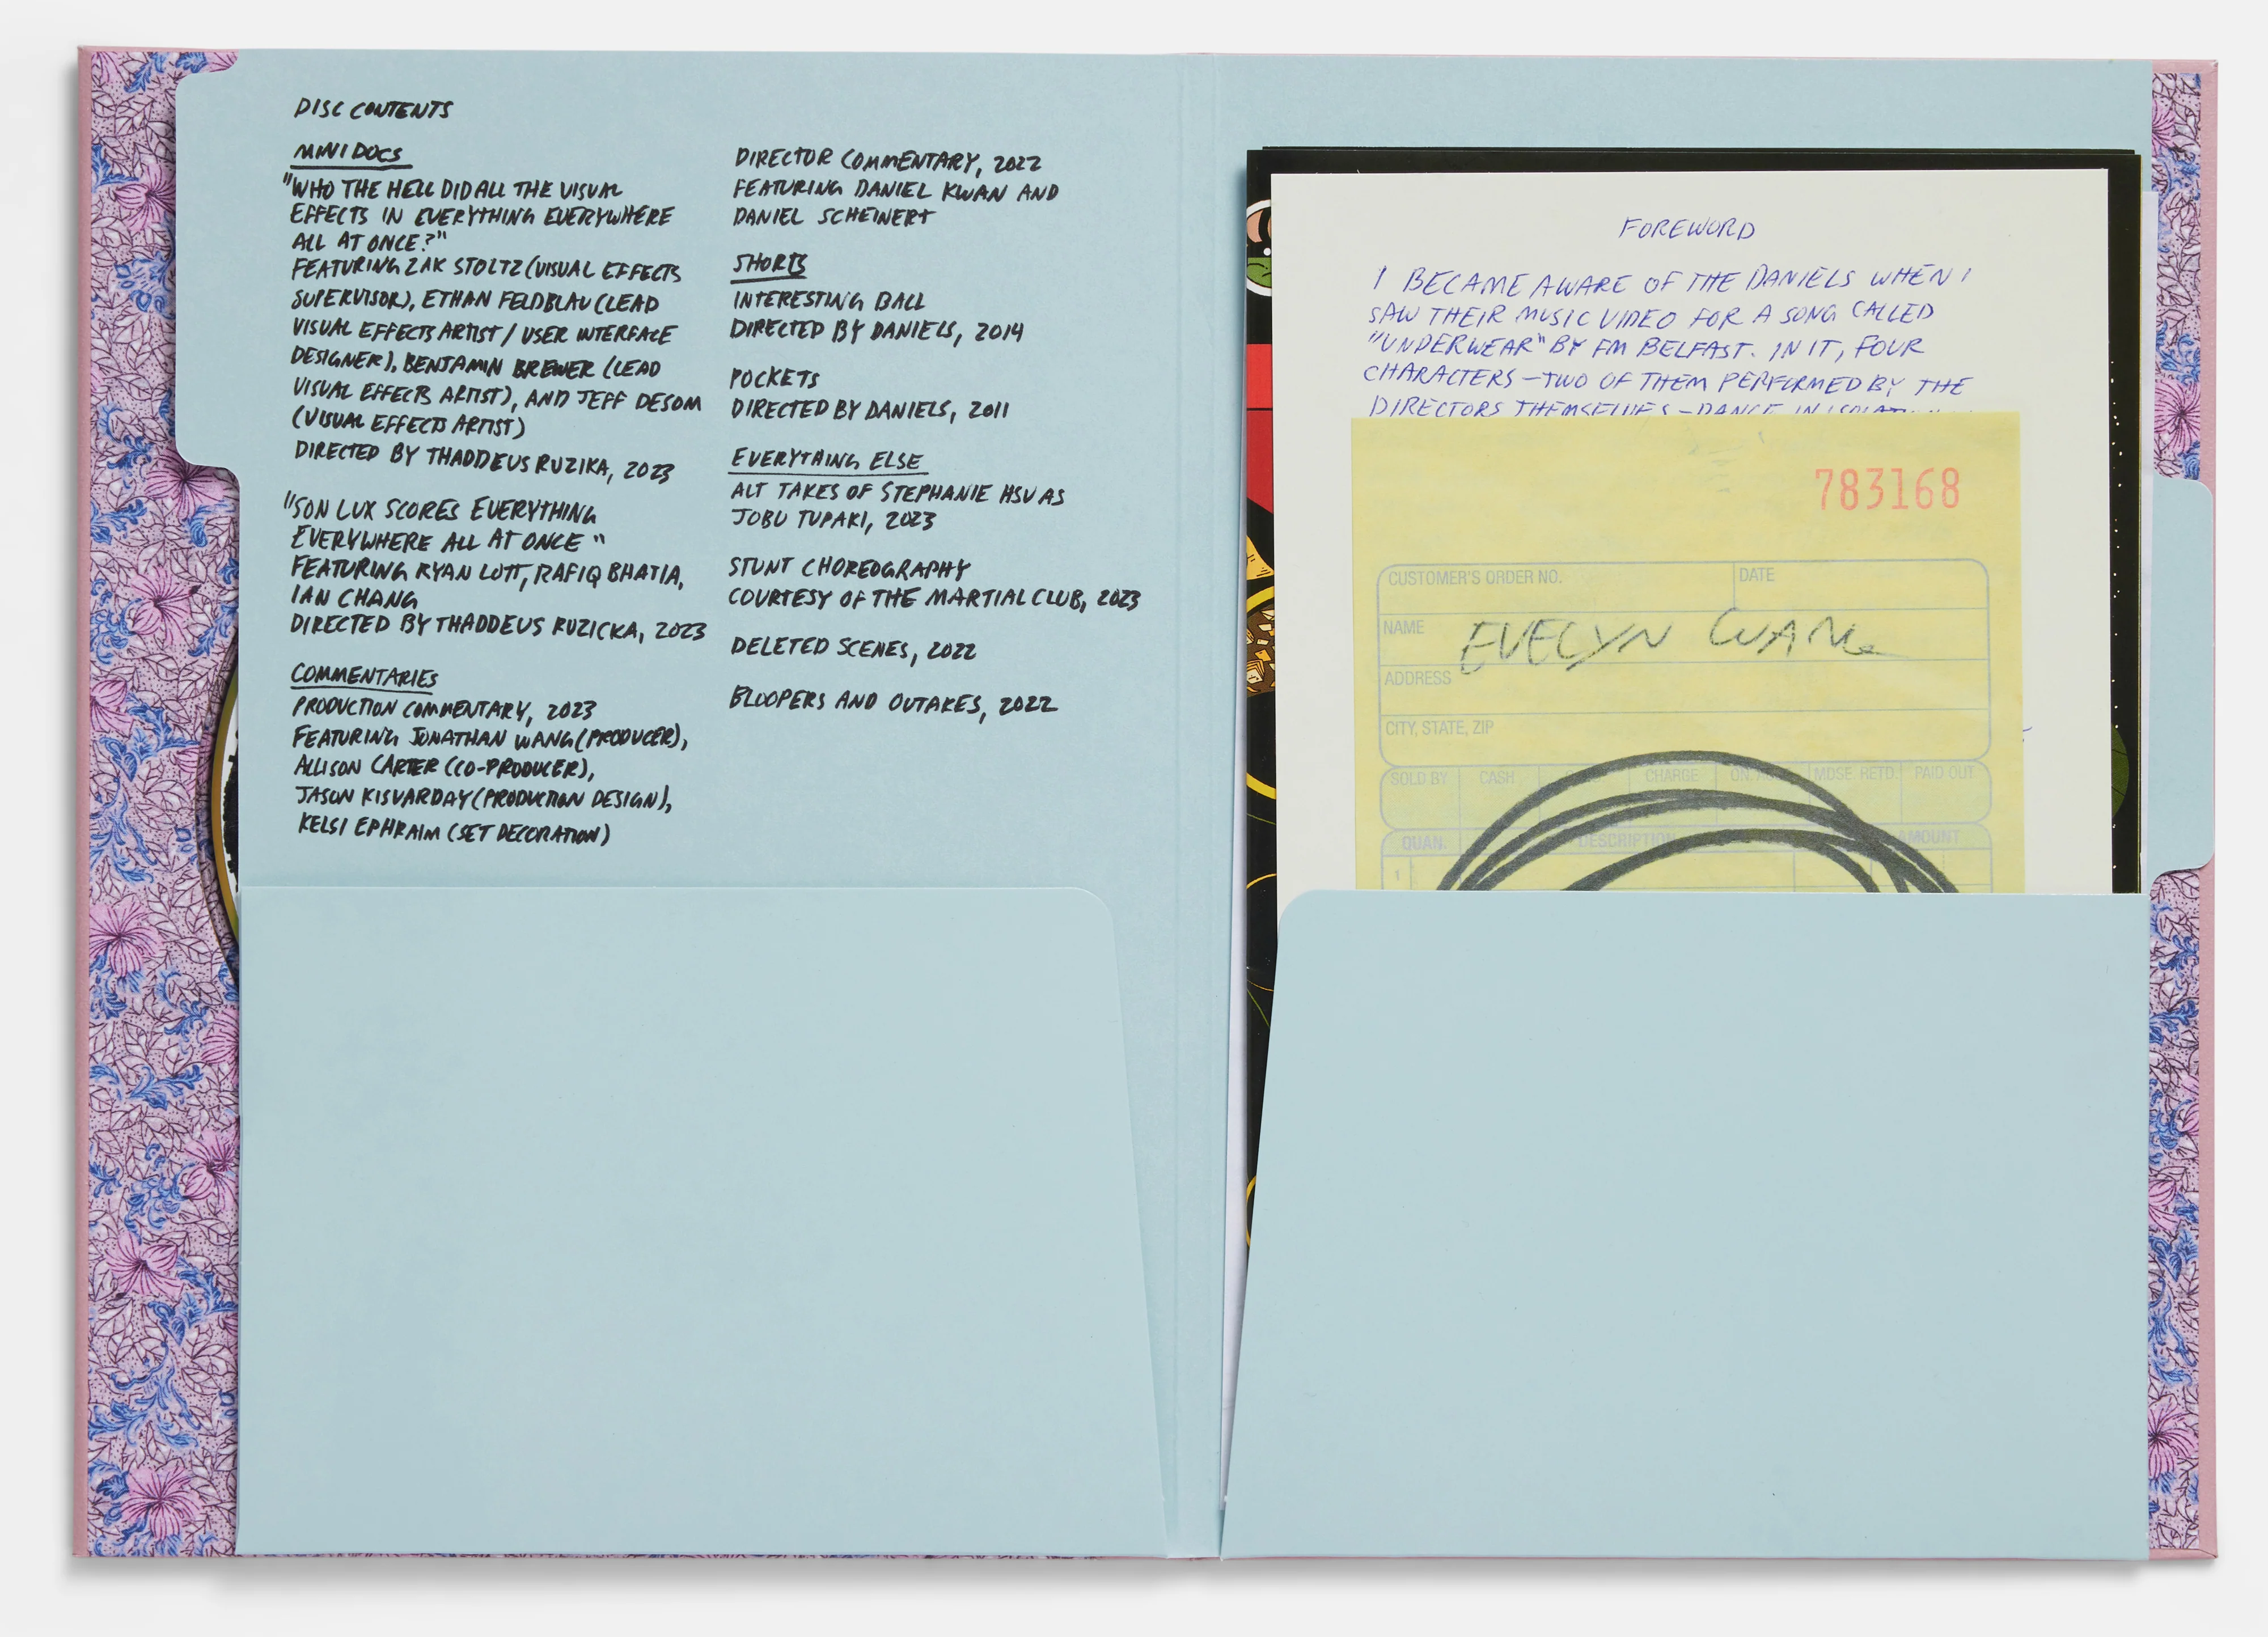 DISC CONTENTS
MINI DOCS
"WHO THE HELL DID ALL THE VISUAL
EFFECTS IN EVERYTHING EVERYWHERE
ALL AT ONCE?"
FEATURING ZAK STOLTZ (VISUAL EFFECTS
SUPERVISOR), ETHAN FELDBLAU (LEAD
VISUAL EFFECTS ARTIST / USER INTERFACE
DESIGNER), BENJAMIN BREWER (LEAD
VISUAL EFFECTS ARTIST), AND JEFF DESOM
(VISUAL EFFECTS ARTIST)
DIRECTED BY THADDEUS RUZIKA, 2023
"SON LUX SCORES EVERYTHING
EVERYWHERE ALL AT ONCE"
FEATURING RYAN LOTT, RAFIQ BHATIA,
IAN CHANG
DIRECTED BY THADDEUS RUZICKA, 2023
COMMENTARIES
PRODUCTION COMMENTARY, 2023
FEATURING JONATHAN WANG (PRODUCER),
ALLISON CARTER (CO-PRODUCER),
JASON KISVARDAY (PRODUCTION DESIGN),
KELSI EPHRAIM (SET DECORATION)
DIRECTOR COMMENTARY, 2022
FEATURING DANIEL KWAN AND
DANIEL SCHEINERT
SHORTS
INTERESTING BALL
DIRECTED BY DANIELS, 2014
POCKETS
DIRECTED BY DANIELS, 2011
EVERYTHING ELSE
ALT TAKES OF STEPHANIE HSU AS
JOBU TUPAKI, 2023
STUNT CHOREOGRAPHY
COURTESY OF THE MARTIAL CLUB, 2023
DELETED SCENES, 2022
BLOOPERS AND OUTAKES, 2022
FOREWORD
I BECAME AWARE OF THE DANIELS WHEN I
SAW THEIR MUSIC VIDEO FOR A SONG CALLED
"UNDERWEAR" BY FM BELFAST. IN IT, FOUR
CHARACTERS — TWO OF THEM PERFORMED BY THE
DIRECTORS THEMSELVES — DANCE IN
783168
CUSTOMER'S ORDER NO. DATE
NAME EVELYN WANG
ADDRESS
CITY, STATE, ZIP
SOLD BY CASH CHARGE ON MDSE RETD. PAID OUT
QUAN. DESCRIPTION AMOUNT
1